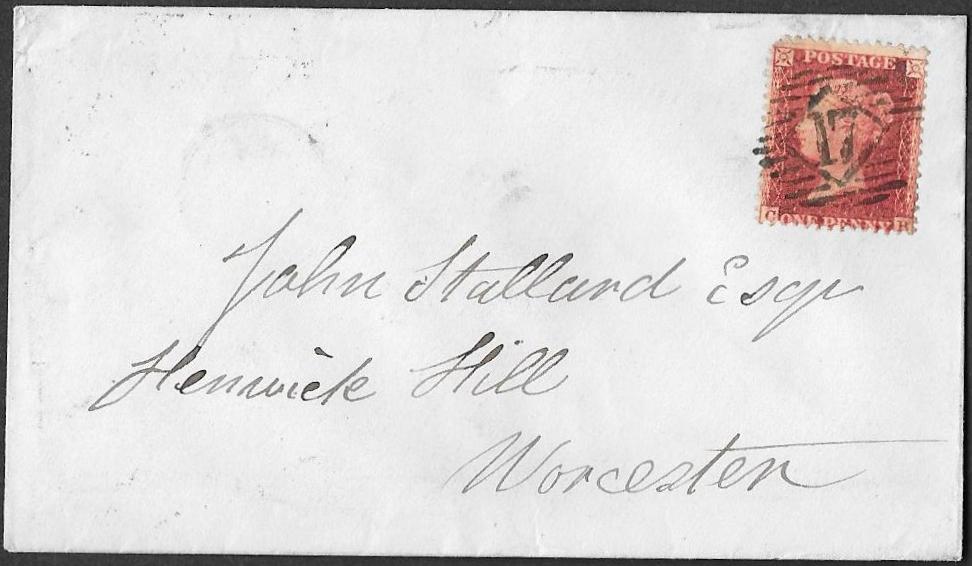 POSTAGE
17
G ONE PENNY R
John Stallard Esqr
Henwick Hill
Worcester